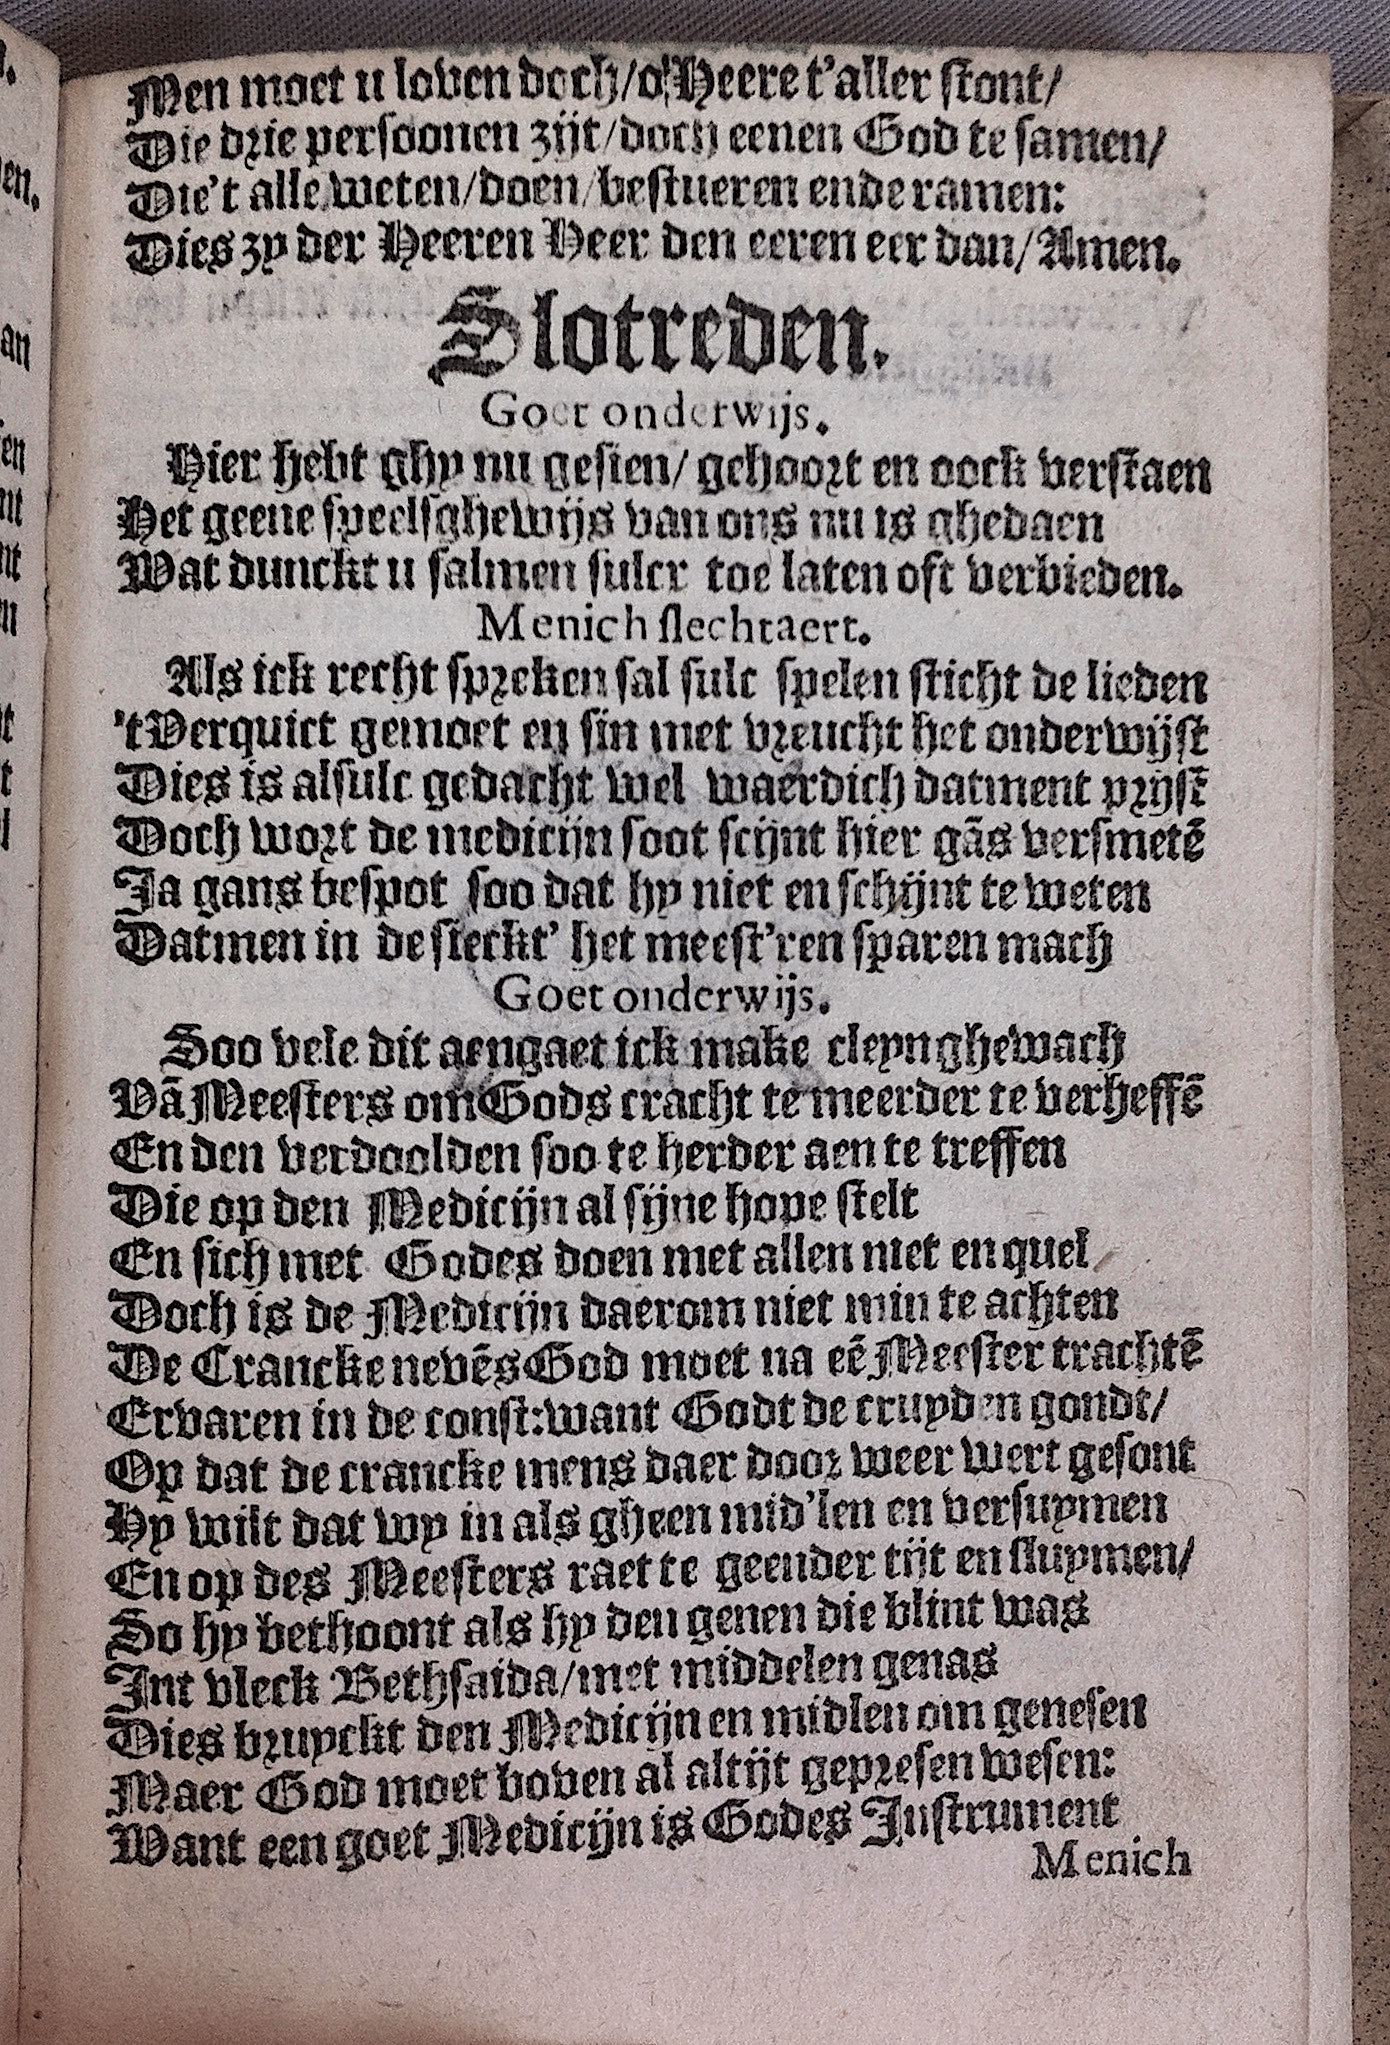 Men moet u loven doch/o Heere t'aller stont/
Die drie persoonen zijt/doch eenen God te samen/
Die't alle weten/doen/bestueren ende ramen:
Dies zy der Heeren Heer den eeren eer dan/Amen.
Slotreden.
Goet onderwijs.
Hier hebt ghy nu gesien/ gehoort en oock verstaen
Het geene speelsghewijs van ons nu is ghedaen
Wat dunckt u salmen sulcx toe laten oft verbieden.
Menich slechtaert.
Als ick recht spreken sal sulc spelen sticht de lieden
't Verquict gemoet en sin met vreucht het onderwijst
Dies is alsulc gedacht wel waerdich datment prijst
Doch wort de medicijn soot scijnt hier gãs versmetẽ
Ja gans bespot soo dat hy niet en schijnt te weten
Datmen in de sieckt' het meest'ren sparen mach
Goet onderwijs.
Soo vele dit aengaet ick make cleyn ghewach
Vã Meesters om Gods cracht te meerder te verheffẽ
En den verdoolden soo te herder aen te treffen
Die op den Medicijn al sijne hope stelt
En sich met Godes doen met allen niet en quel
Doch is de Medicijn daerom niet min te achten
De Crancke nevẽs God moet na eẽ Meester trachtẽ
Ervaren in de const: want Godt de cruyden gondt/
Op dat de crancke mens daer door weer wert gesont
Hy wilt dat wy in als gheen mid'len en versuymen
En op des Meesters raet te geender tijt en sluymen/
So hy bethoont als hy den genen die blint was
Int vleck Bethsaida/met middelen genas
Dies bruyckt den Medicijn en midlen om genesen
Maer God moet boven al altijt gepresen wesen:
Want een goet Medicijn is Godes Instrument
Menich